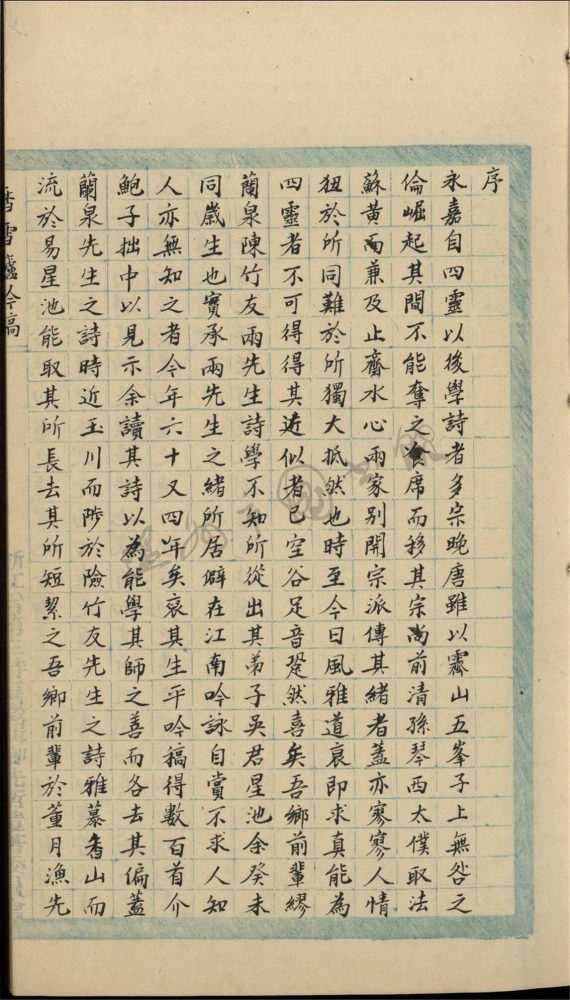 序
永嘉自四靈以後學詩者多宗晚唐雖以霽山五峯子上無咎之
倫崛起其間不能奪之食席而移其宗尚前清孫琴西太僕取法
蘇黃而兼及止齋水心兩家別開宗派傳其緒者蓋亦寥寥人情
狃於所同難於所獨大抵然也時至今日風雅道衰即求真能為
四靈者不可得得其近似者已空谷足音跫然喜矣吾鄉前輩繆
蘭泉陳竹友兩先生詩學不知所從出其弟子吳君星池余癸未
同歲生也實承兩先生之緒所居僻在江南吟詠自賞不求人知
人亦無知之者今年六十又四年矣裒其生平吟稿得數百首介
鮑子拙中以見示余讀其詩以為能學其師之善而各去其偏蓋
蘭泉先生之詩時近玉川而陟於險竹友先生之詩雅慕香山而
流於易星池能取其所長去其所短絜之吾鄉前輩於董月漁先
香雪廬吟稿